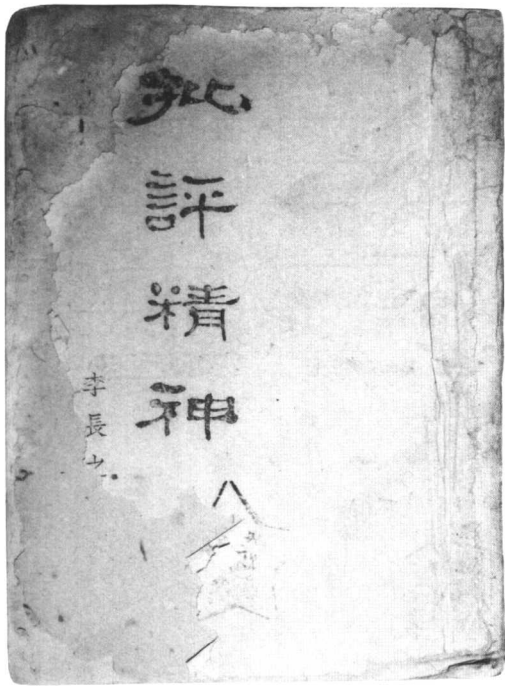 批評精神
李長之